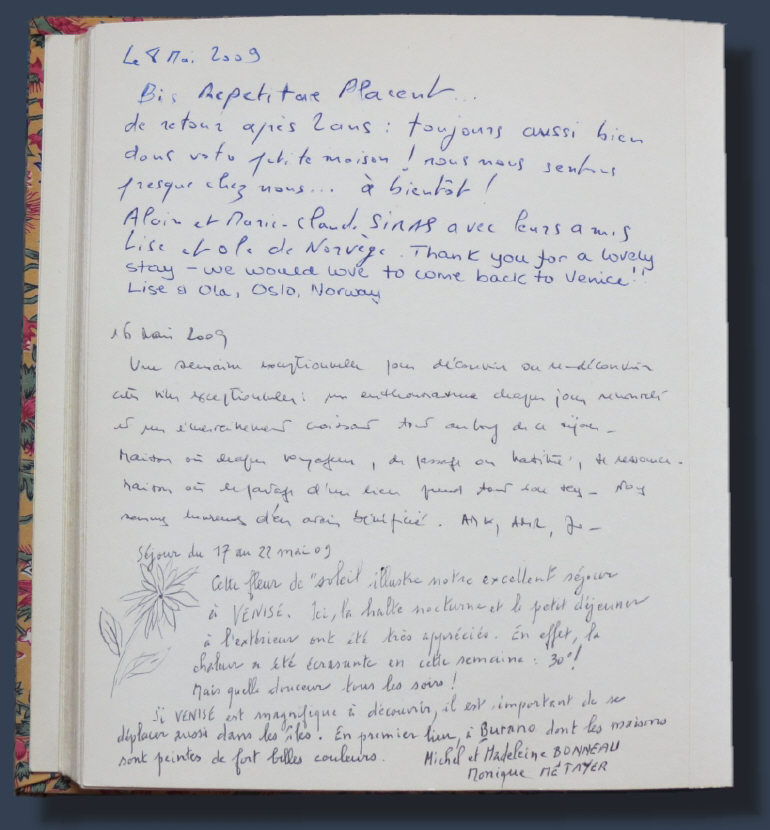 Le 8 Mai 2009
Bis Repetitae Placent...
de retour après 2 ans : toujours aussi bien
dans votre petite maison ! nous nous sentons
presque chez nous... à bientôt !
Alain et Marie-Claude SIRAS avec leurs amis
Lise et Ola de Norvège. Thank you for a lovely
stay - we would love to come back to Venice!!
Lise & Ola, Oslo, Norway
16 mai 2009
Une semaine exceptionnelle pour découvrir ou re-découvrir
cette ville exceptionnelle : un enthousiasme chaque jour renouvelé
et un émerveillement croissant tout au long de ce séjour -
Maison où chaque voyageur, de passage ou habitué, se ressource.
Maison où le partage d'un lieu prend tout son sens - Nous
sommes heureux d'en avoir bénéficié.
Séjour du 17 au 22 mai 09
Cette fleur de "soleil illustre notre excellent séjour
à VENISE. Ici, la halte nocturne et le petit déjeuner
à l'extérieur ont été très appréciés. En effet, la
chaleur a été écrasante en cette semaine : 30° !
Mais quelle douceur tous les soirs !
Si VENISE est magnifique à découvrir, il est important de se
déplacer aussi dans les îles. En premier lieu, à Burano dont les maisons
sont peintes de fort belles couleurs. Michel et Madeleine BONNEAU
Monique MÉTAYER